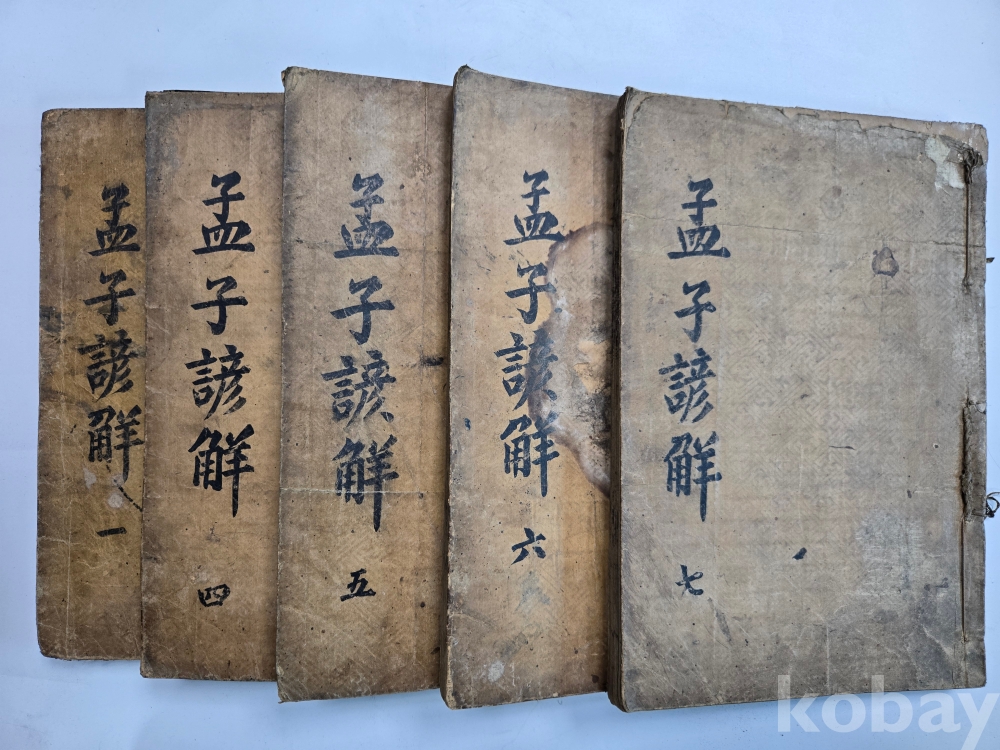 孟子諺觧
一
孟子諺觧
四
孟子諺觧
五
孟子諺觧
六
孟子諺觧
七
kobay